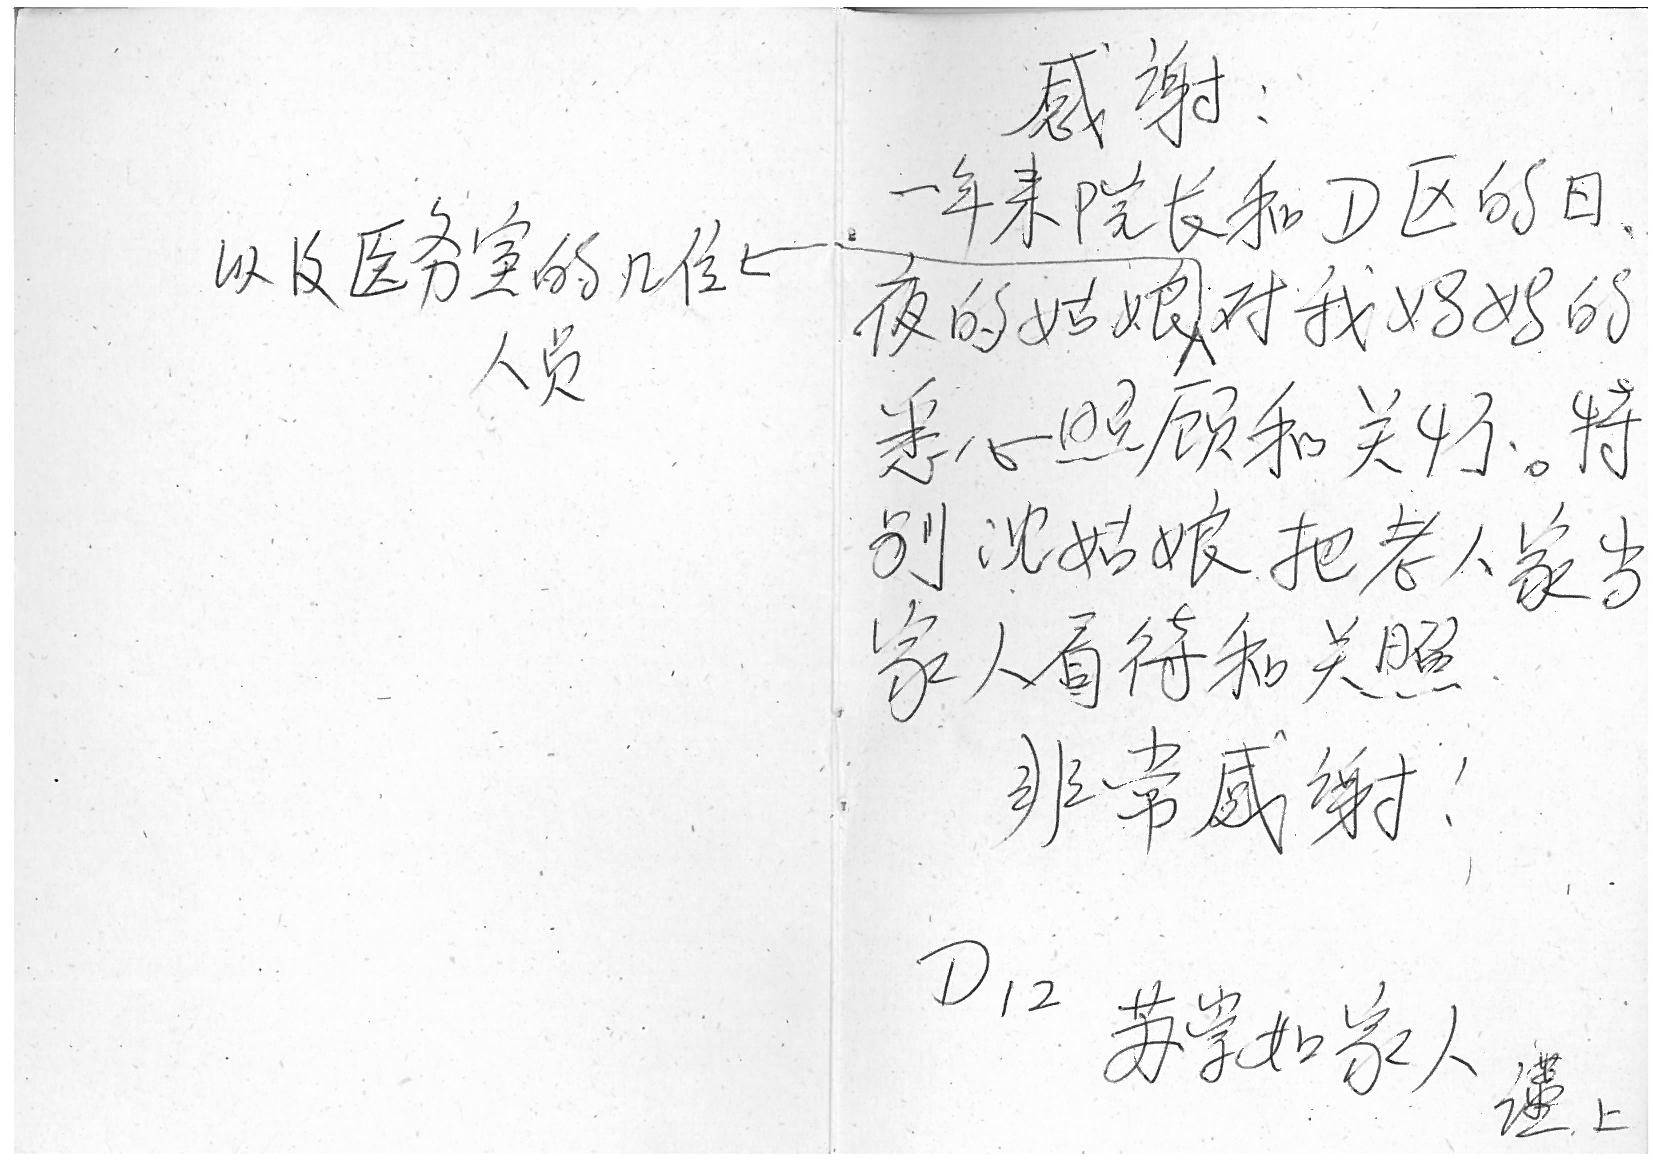 感谢:
一年来院长和D区的日、
夜的姑娘对我妈妈的
悉心照顾和关怀。特
别沈姑娘把老人家当
家人看待和关照
非常感谢!
D12
苏学如家人
谨上
以及医务室的几位
人员